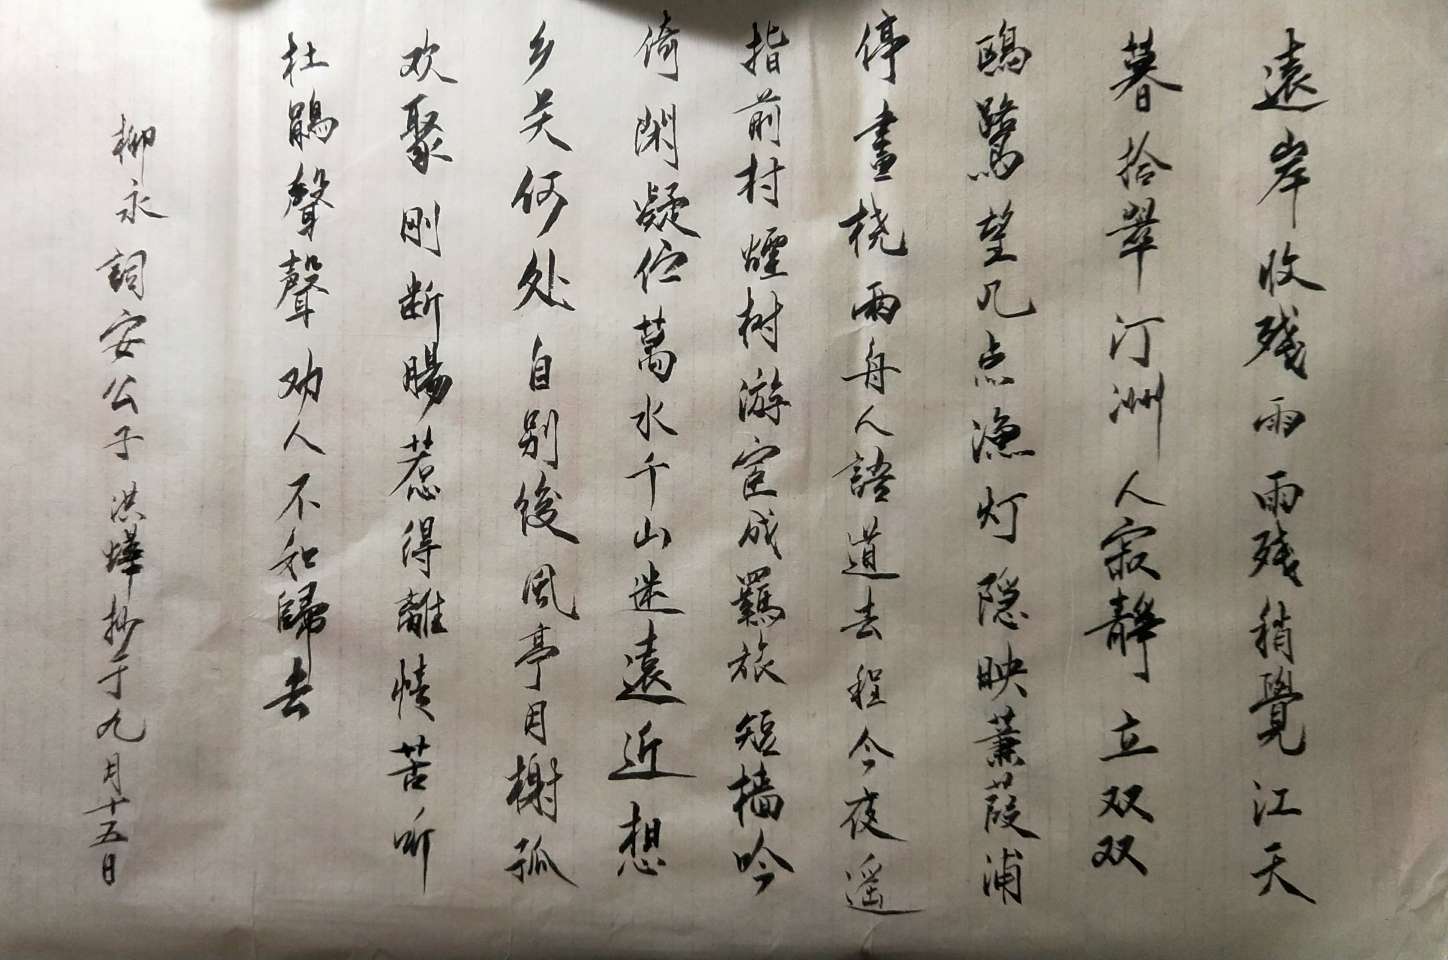 遠岸收残雨雨残稍覺江天
暮拾翠汀洲人寂靜立双双
鷗鷺望几点漁灯隐映蒹葭浦
停畫桡兩舟人語道去程今夜遥
指前村煙树游宦成羈旅短樯吟
倚闲凝伫萬水千山迷遠近想
乡关何处自别後风亭月榭孤
欢聚刚断腸惹得離情苦听
杜鹃聲聲劝人不如歸去
柳永詞安公子洪燁抄于九月十五日